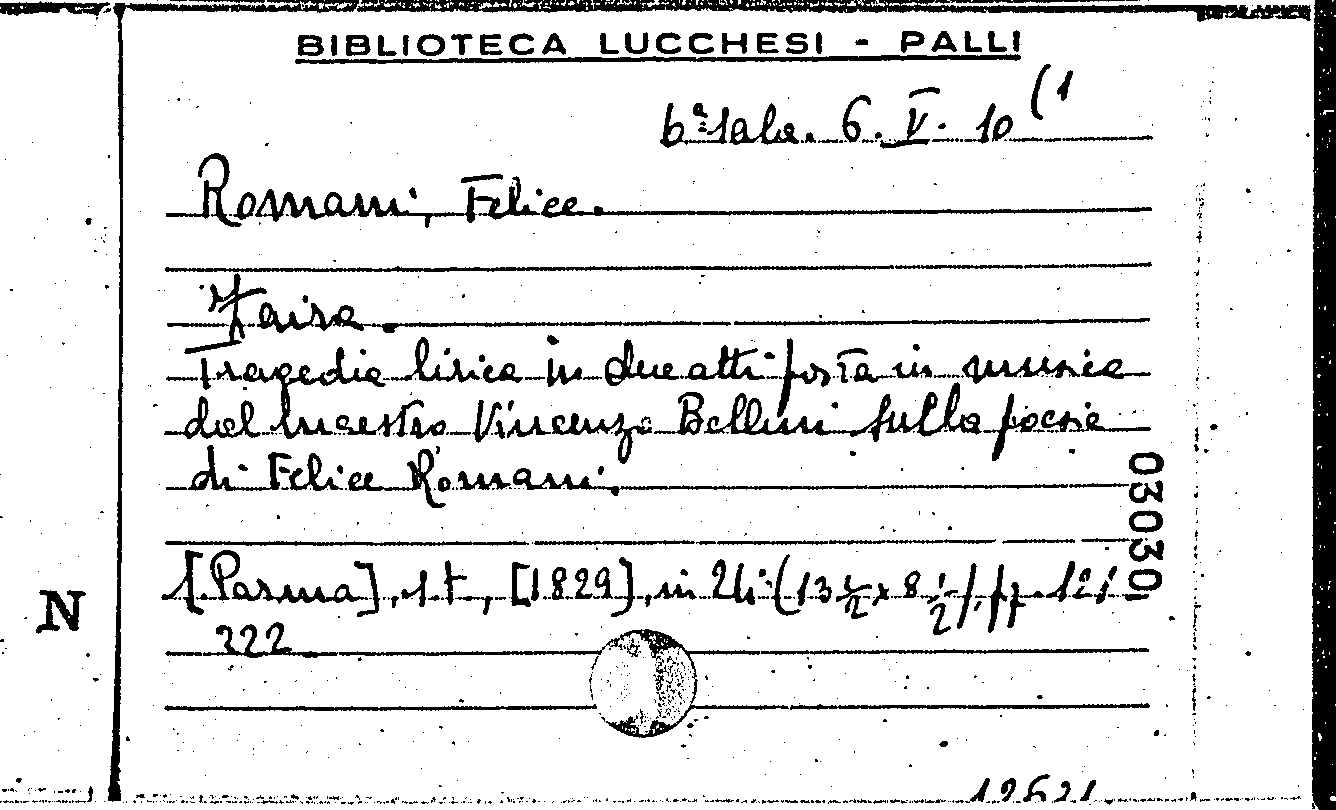 BIBLIOTECA LUCCHESI - PALLI
6ª sala. 6. V. 10 (1
Romani, Felice.
Zaira.
Tragedia lirica in due atti posta in musica
dal maestro Vincenzo Bellini sulla poesia
di Felice Romani.
03030
[Parma], s.t., [1829], in 24° (13 1/2 x 8 1/2), pp. 121
222
N